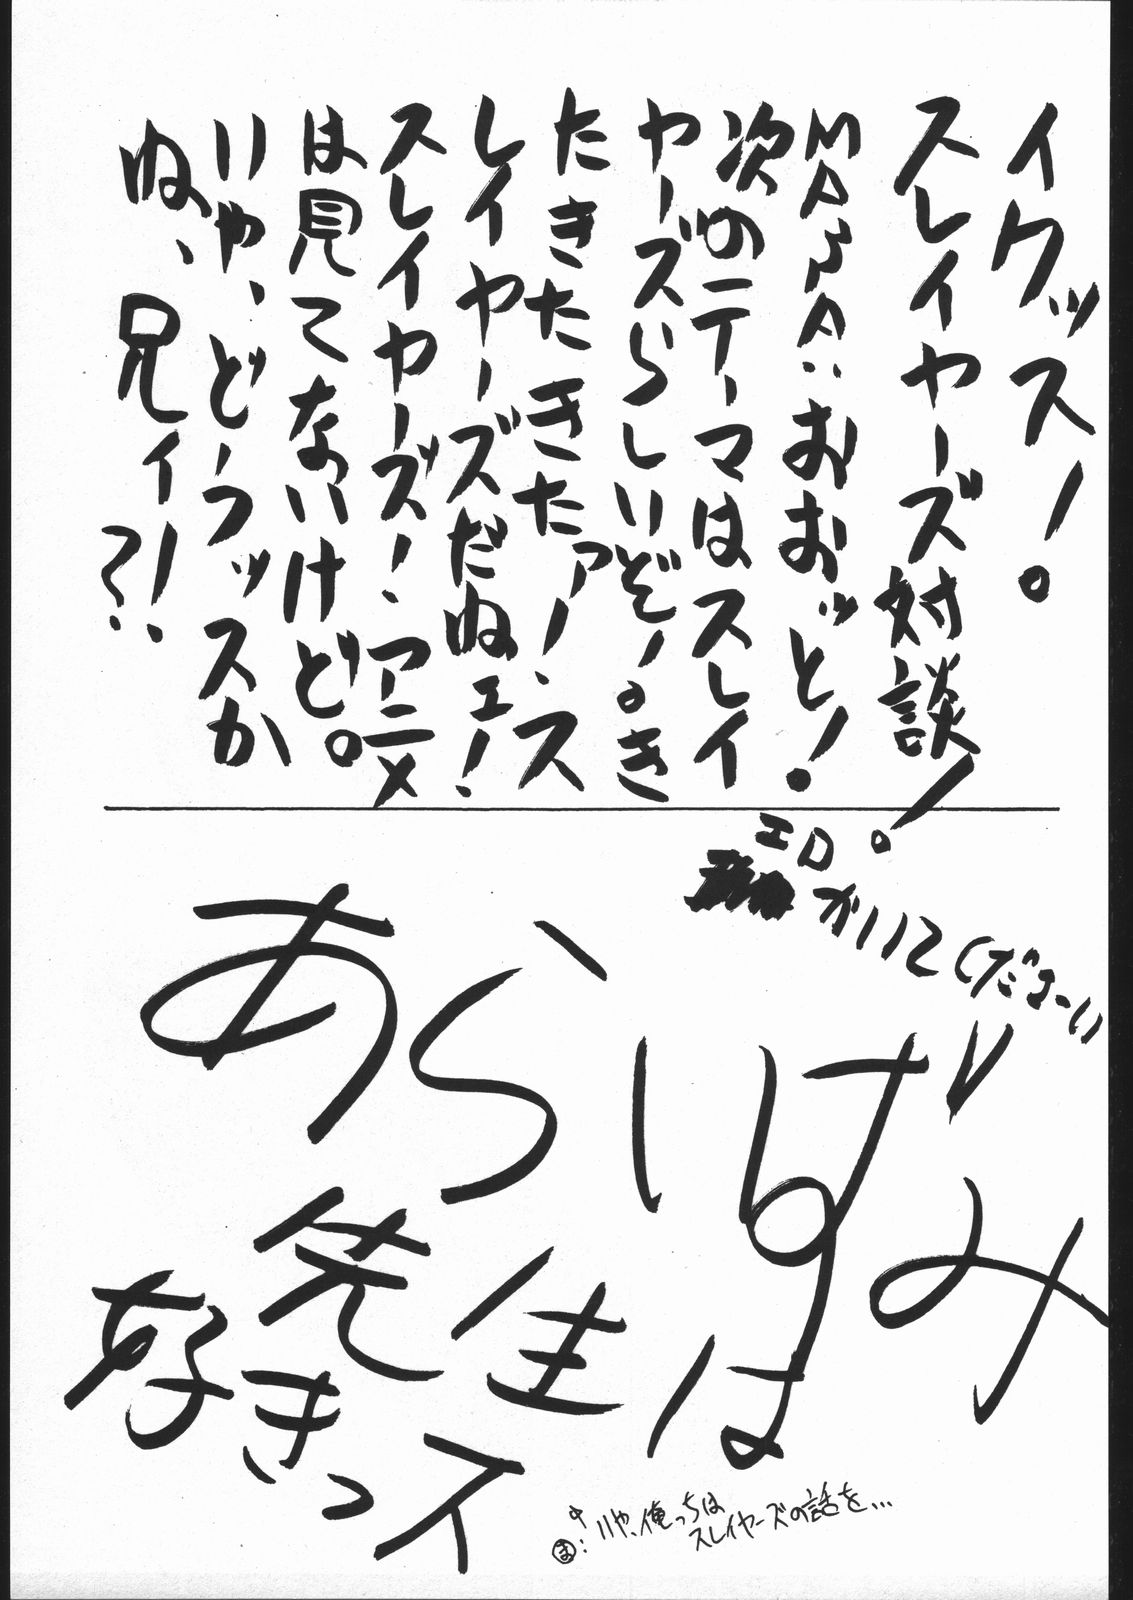 イクッス!。
スレイヤーズ対談!。
MASA:おおッと!。
次のテーマはスレイ
ヤーズらしいぞ!。き
たきたきたァー!、ス
レイヤーズだぬェ!
スレイヤーズ!、アニメ
は見てないけど。
いや、どーッスか
ね、兄ィ!?
エロ
かいてくださーい
みずいは
あら先生
好きっス
ま:いや、俺っちは
スレイヤーズの話を…